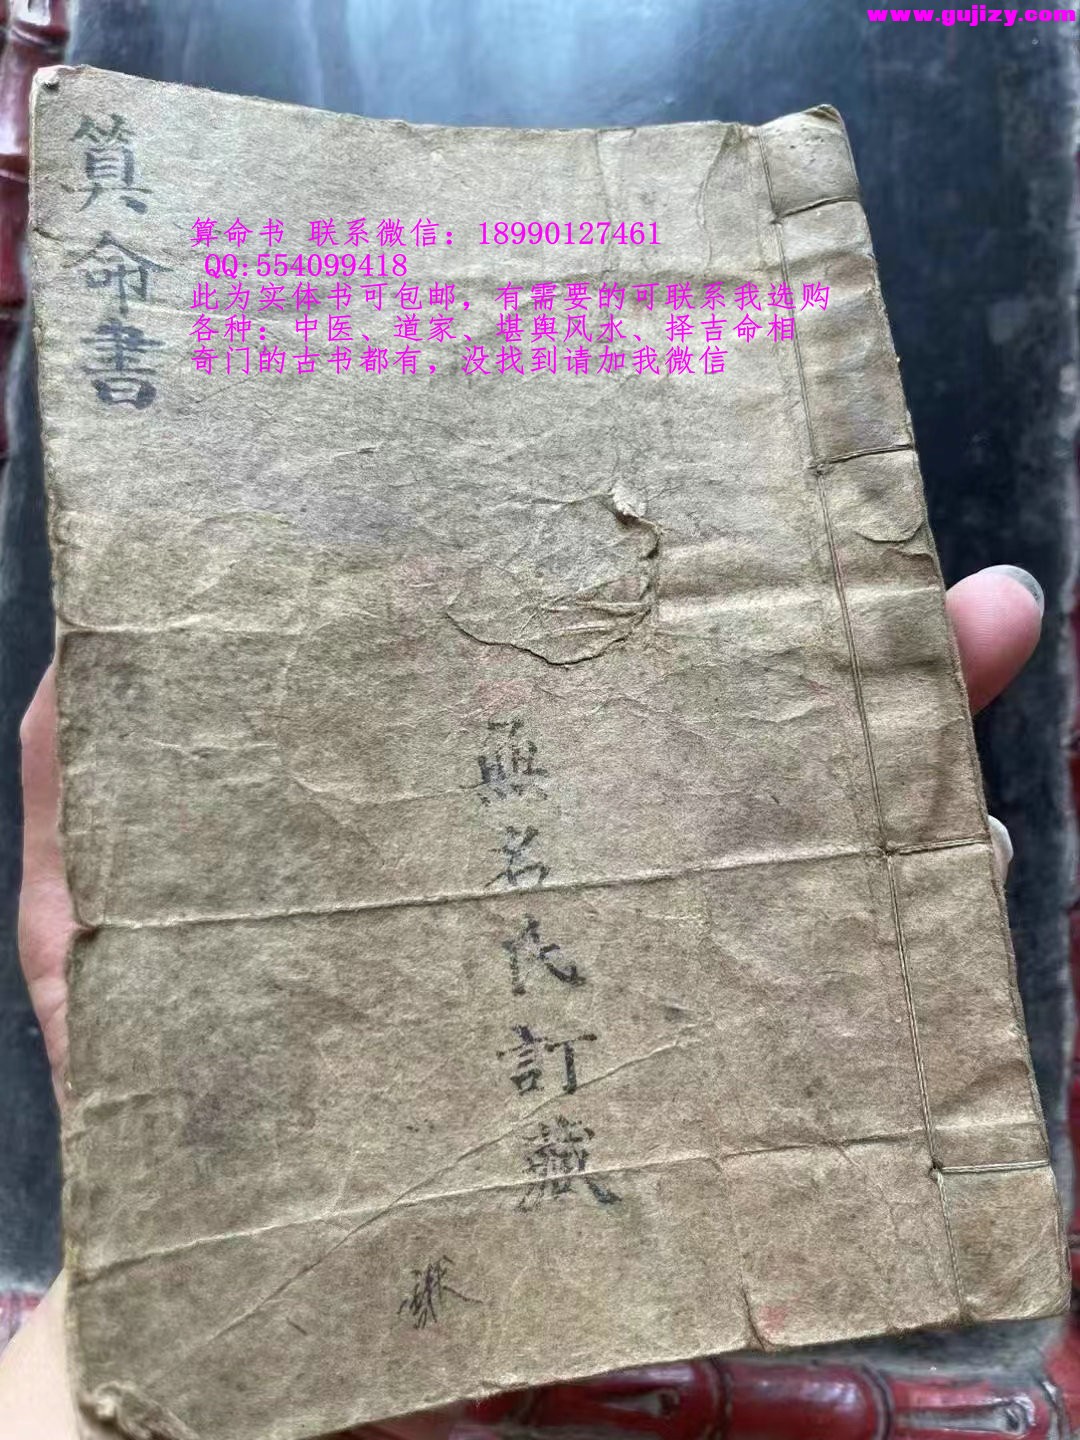 www.gujizy.com
算命書
算命书 联系微信：18990127461
QQ:554099418
此为实体书可包邮，有需要的可联系我选购
各种：中医、道家、堪舆风水、择吉命相
奇门的古书都有，没找到请加我微信
無名氏訂藏